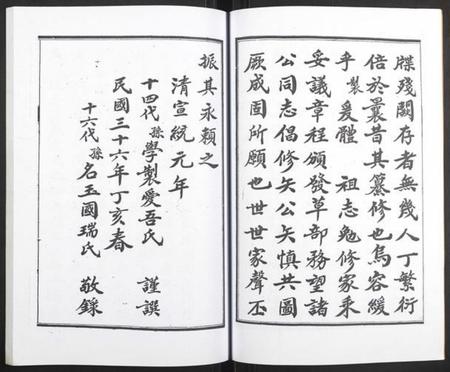 牒殘闕存者無幾人丁繁衍
倍於曩昔其纂修也烏容緩
乎製爰體祖志勉修家乘
妥議章程頒發草部務望諸
公同志倡修矢公矢慎共圖
厥成固所願也世世家聲丕
振其永賴之
清宣統元年
十四代孫學製愛吾氏謹譔
民國三十六年丁亥春
十六代孫名玉國瑞氏敬錄